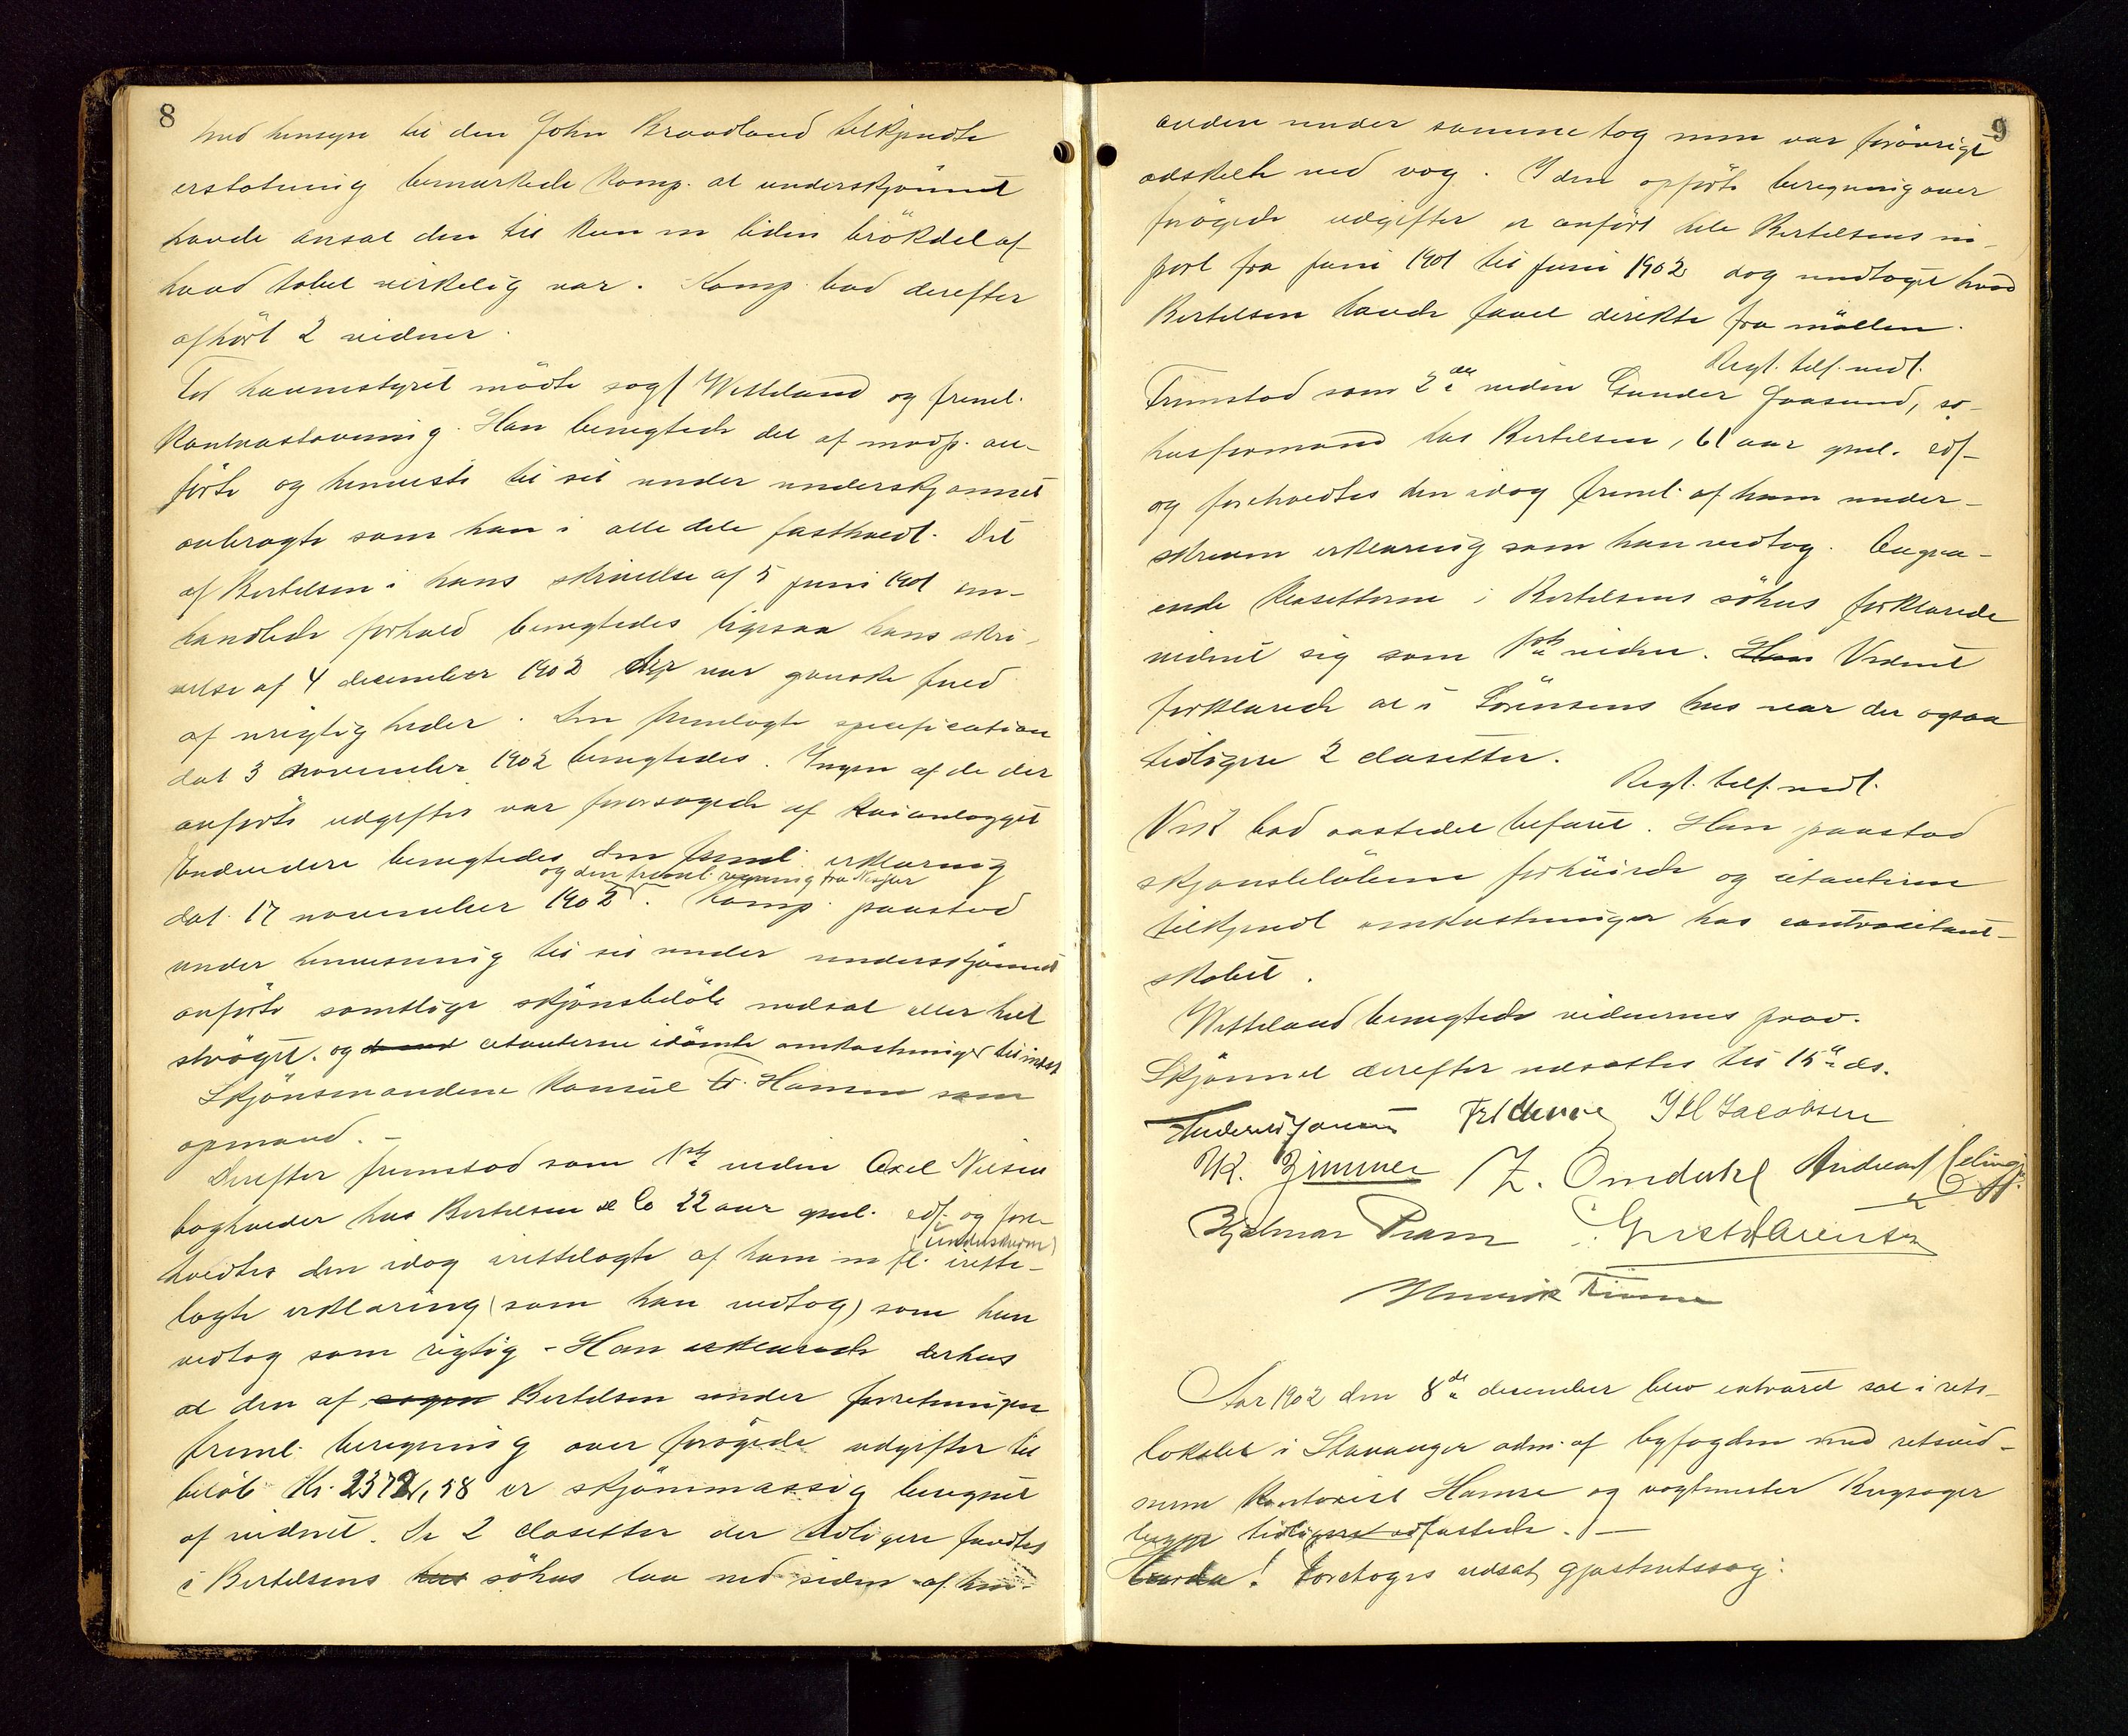 8
med hensyn til den John Braadland tilkjendte
erstatning bemærkede komp. at underskjönnet
havde ansat den til kun en liden brökdel af
hvad tabet virkelig var. Komp. bad derefter
afhört 2 vidner.
For havnestyret mödte sagf Wetteland og freml.
Kontrastævning. Han benegtede det af modp. an-
förte og henviste til sit under underskjönnet
anbragte som han i alle dele fastholdt. Det
af Bertelsen i hans skrivelse af 5 juni 1901 om-
handlede forhold benegtedes ligesaa hans skri-
velse af 4 december 1902 der var ganske fuld
af urigtigheder. Den fremlagte specification
dat 3 november 1902 benegtedes. Ingen af de der
anförte udgifter var foraarsagede af kaianlægget
Endvidere benegtedes den freml. erklæring
og den freml. regning fra
dat. 17 november 1902. Komp. paastod
under henvisning til sit under underskjönnet
anförte samtlige skjönsbelöb nedsat eller helt
ströget. og citanterne idömte omkostninger til
Skjönsmændene konsul Fr. Hansen som
opmand. -
Derefter fremstod som 1ste vidne Axel Nielsen
bogholder hos Bertelsen & Co 22 aar gml. edf. og fore-
(underskrevne)
holdtes den idag irettelagte af ham m fl. irette-
lagte erklæring (som han vedtog) som han
vedtog som rigtig - Han erklærede derhos
at den af sagen Bertelsen under forretningen
freml. beregning over forögede udgifter til
belöb Kr. 2372,58 er skjönmæssig beregnet
af vidnet. De 2 closetter der tidligere fandtes
i Bertelsens hus söhus laa ved siden af hin-
9
anden under samme tag men var forövrigt
adskilt ved væg. I den opförte beregning over
forögede udgifter er anfört hele Bertelsens im-
port fra juni 1901 til juni 1902 dog undtaget hvad
Bertelsen havde faaet direkte fra möllen.
Regl. tilf. vedt.
Fremstod som 2det vidne Gunder Gaasund, sö-
husformand hos Bertelsen, 61 aar gml. edf.
og foreholdtes den idag freml. af ham under-
skrevne erklæring som han vedtog. Angaa-
ende klosetterne i Bertelsens söhus forklarede
vidnet sig som 1ste vidne. Han Vidnet
forklarede at i Sörensens hus var der ogsaa
tidligere 2 closetter.
Regl. tilf. vedt.
Vik bad aastedet befaret. Han paastod
skjönsbelöbene forhöiede og citanterne
tilkjendt omkostninger hos contracitant-
skabet.
Wetteland benegtede vidnernes prov.
Skjönnet derefter udsattes til 15de ds.
I H Jacobsen
Zimmer Z. Omdahl Andreas
Hjalmar Pram
Henrik Finne
Aar 1902 den 8de december blev extraret sat i rets-
lokalet i Stavanger adm. af byfogden med retsvid-
nerne kontorist Hansen og vægtmester
begge tidligere edfæstede. -
Foretoges udsat gjæsteretssag: